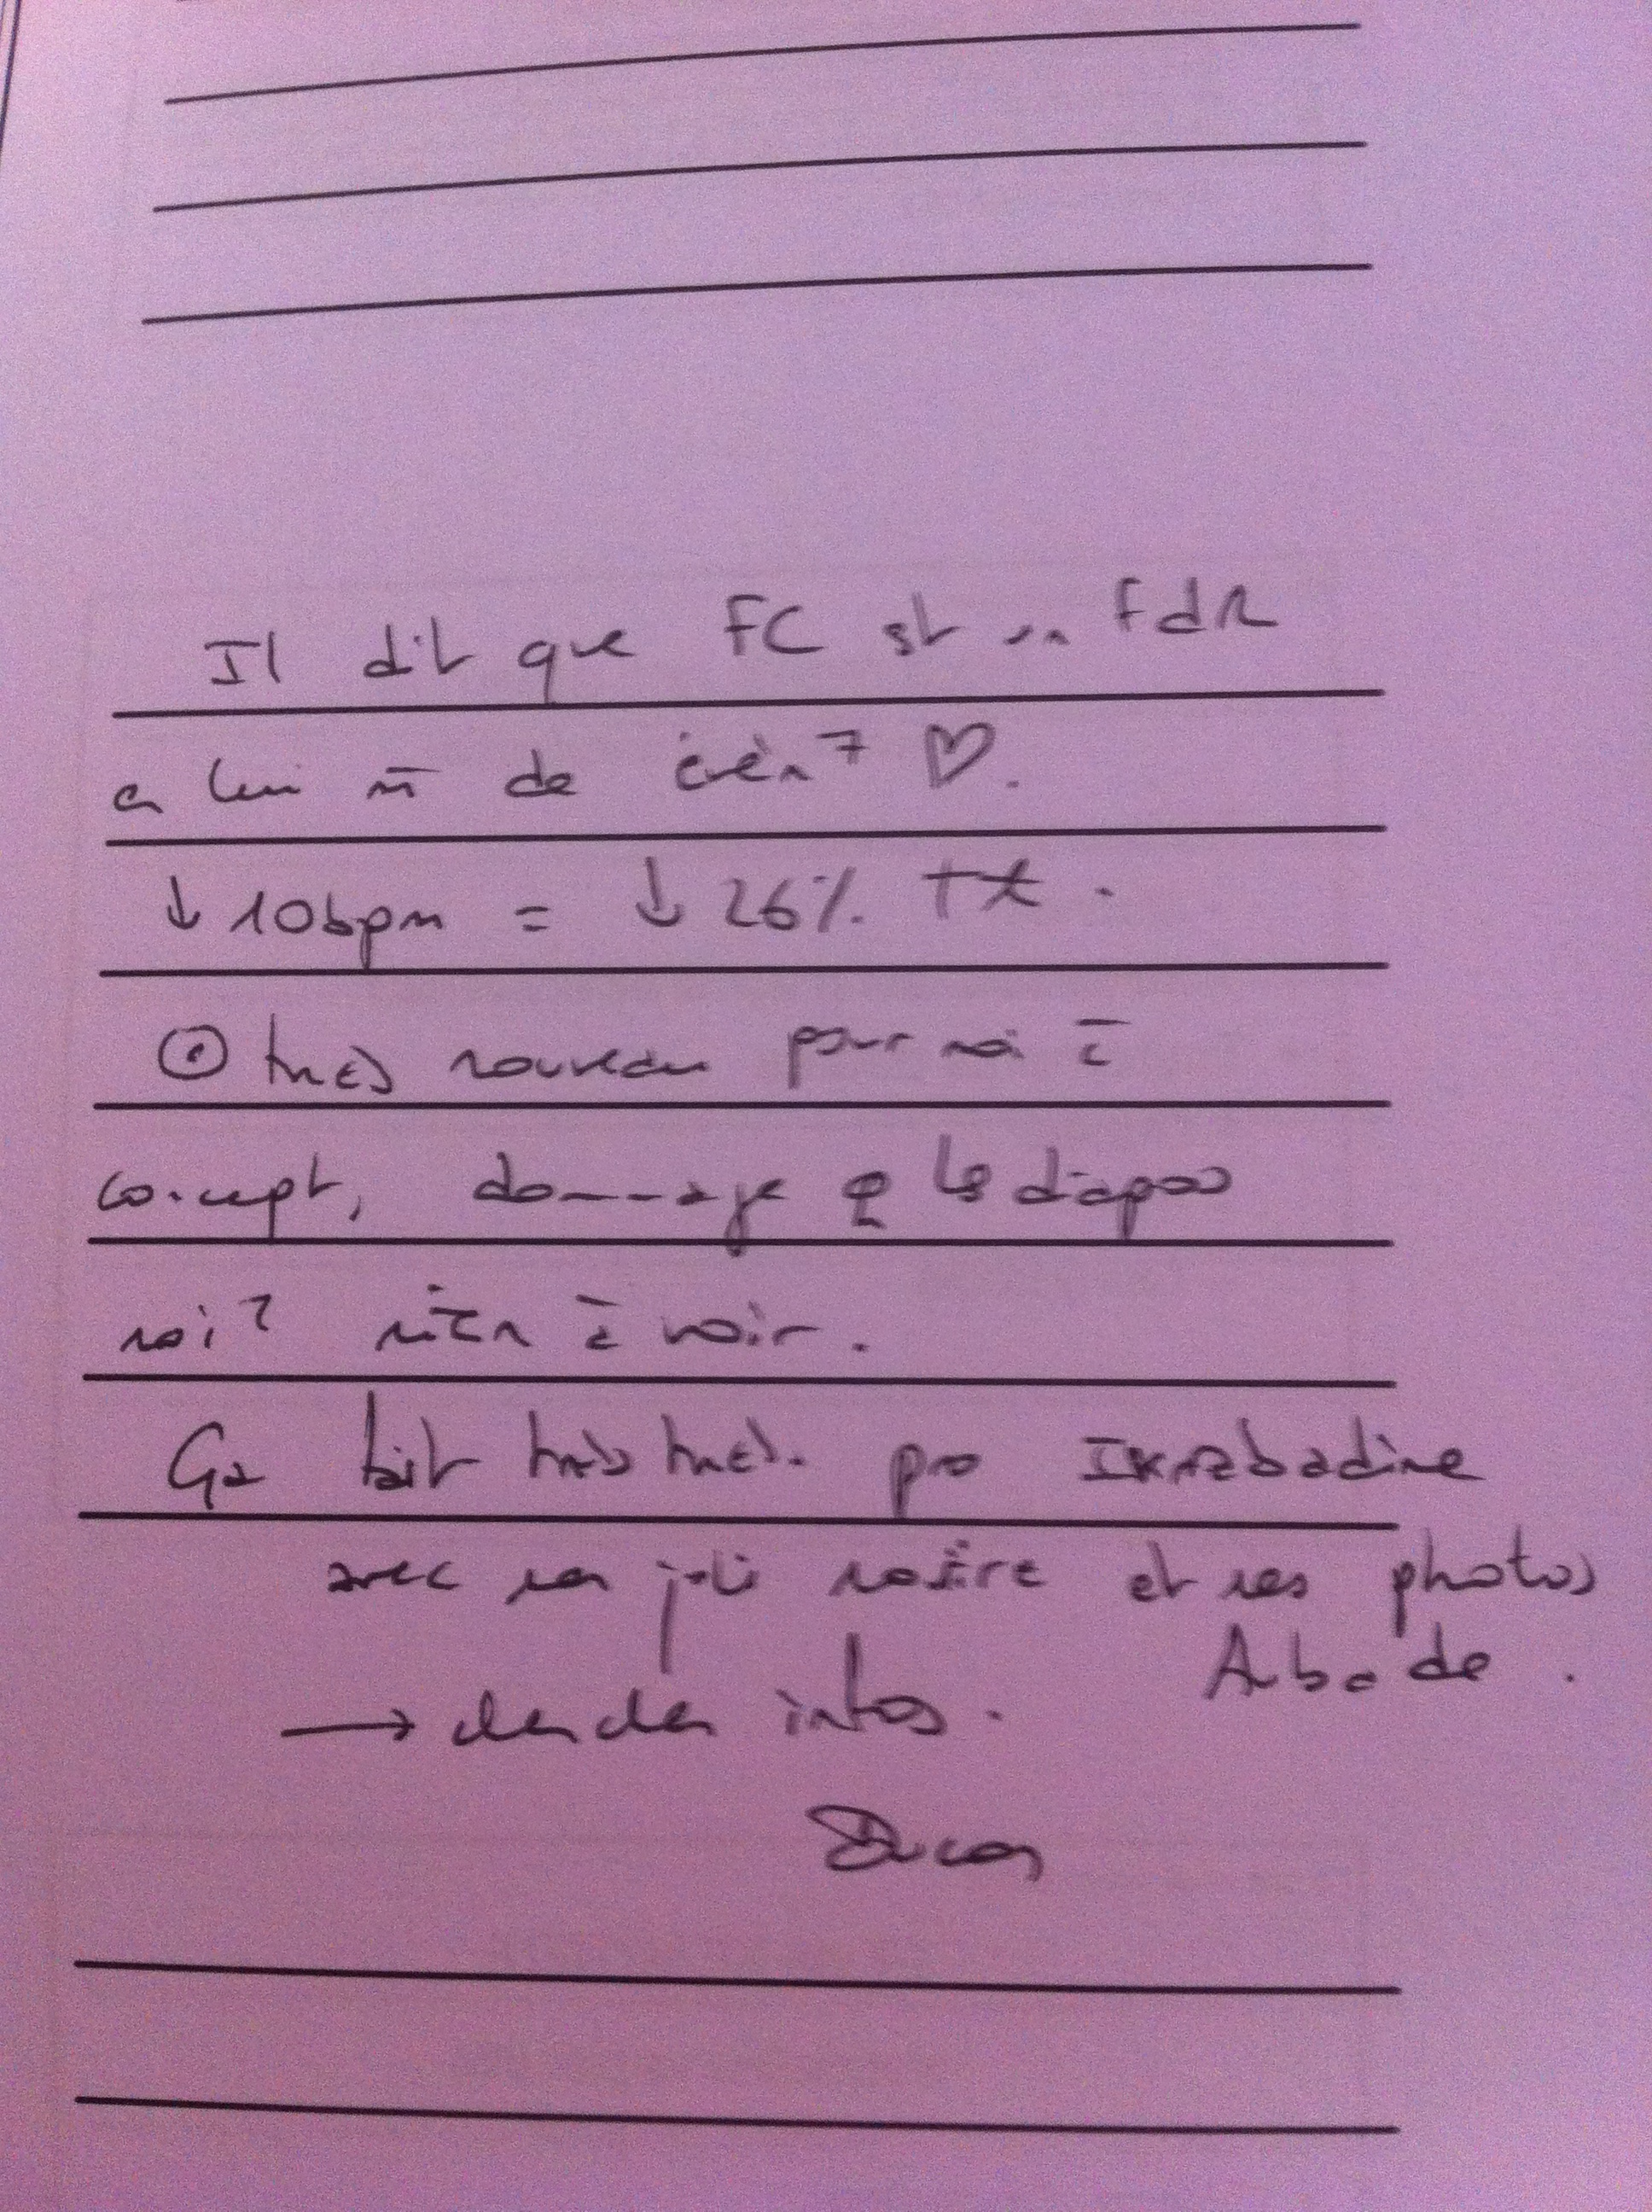 Il dit que FC st un FdR
en lui m̄ de évèn^t ♡.
↓ 10bpm = ↓ 26%
très nouveau pour moi c̄
concept, dommage q les diapos
moi? rien à voir.
Ça fait très très. pro Ivrabadine
avec un joli noeire et ses photos
→ infos.